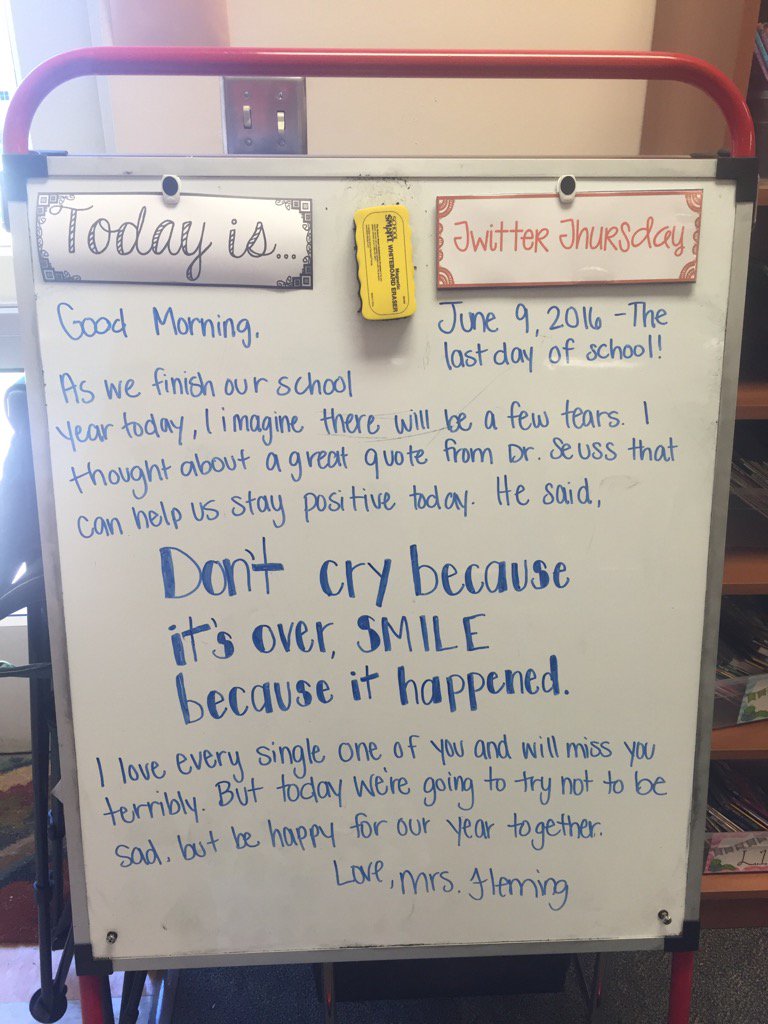 Today is...
SCHOOL
SMART WHITEBOARD ERASER
Magnetic
Twitter Thursday
Good Morning.
June 9, 2016 - The
last day of school!
As we finish our school
year today, I imagine there will be a few tears. I
thought about a great quote from Dr. Seuss that
can help us stay positive today. He said,
Don't cry because
it's over, SMILE
because it happened.
I love every single one of you and will miss you
terribly. But today we're going to try not to be
sad, but be happy for our year together.
Love, Mrs. Fleming